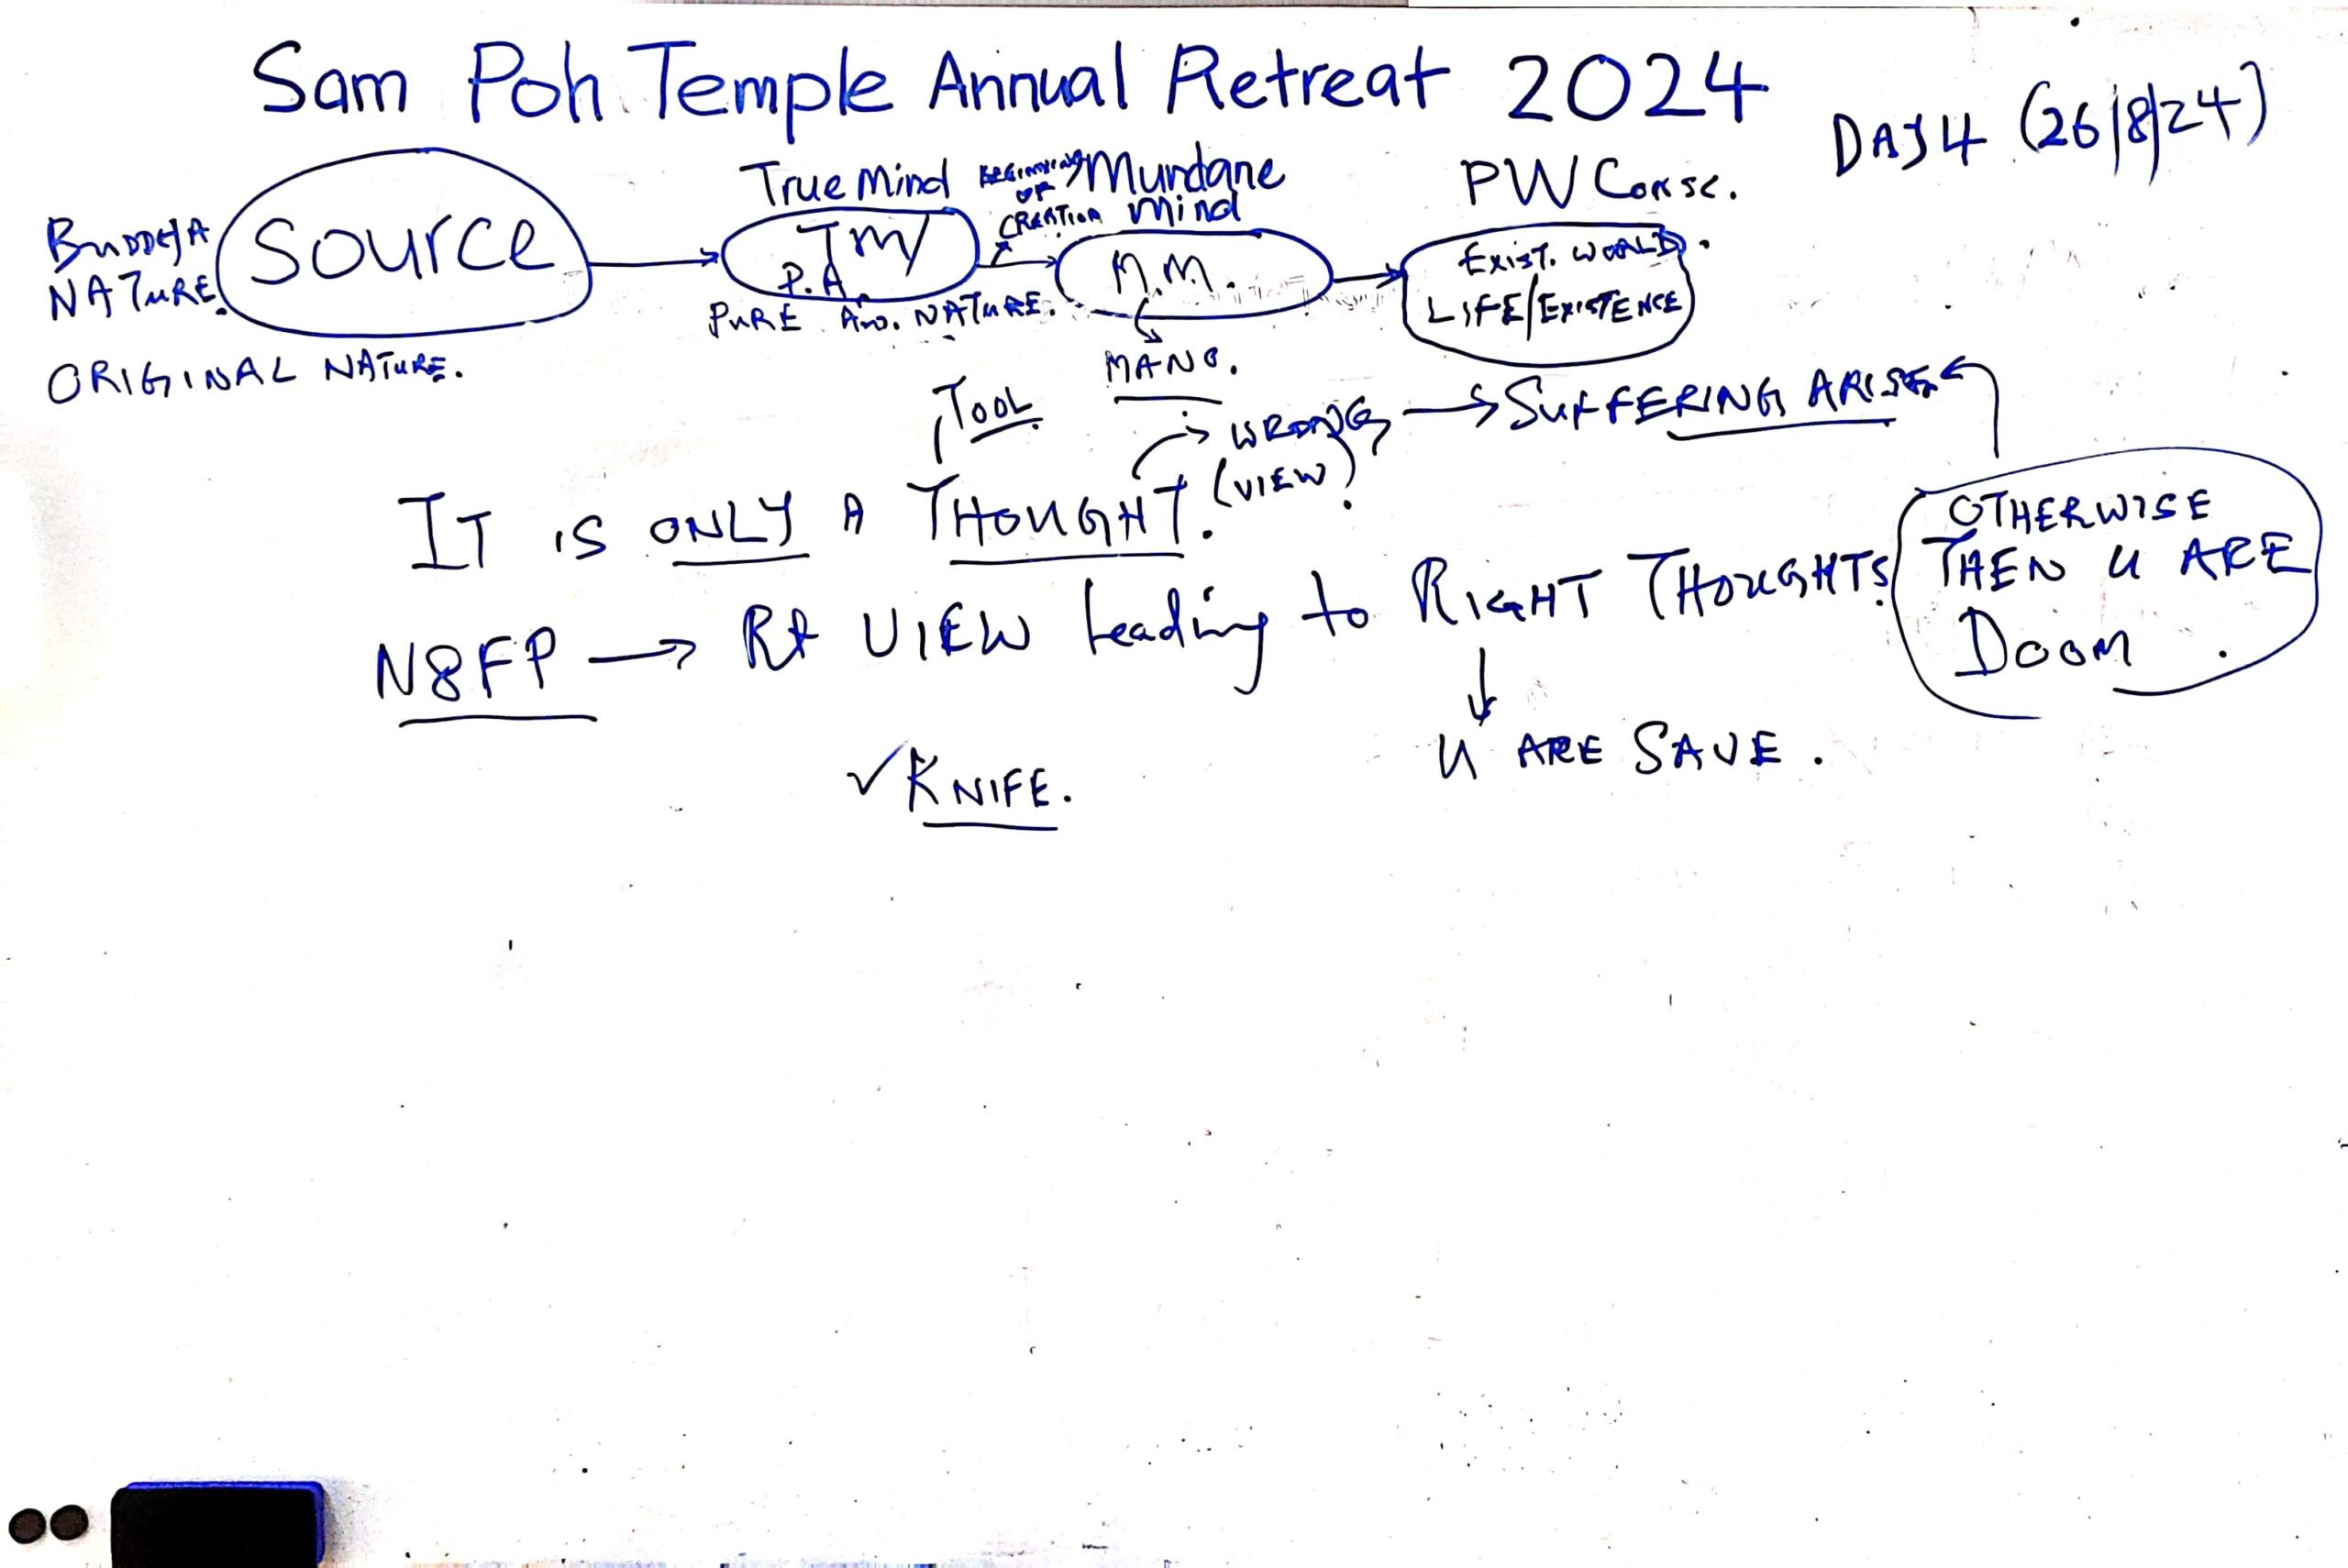 Sam Poh Temple Annual Retreat 2024
DAY 4 (26/8/24)
True Mind
BEGINNING OF CREATION
Mundane Mind
PW Consc.
BUDDHA NATURE.
Source
TM/
P.A.
M.M.
EXIST. WORLD.
LIFE/EXISTENCE
PURE AW. NATURE.
ORIGINAL NATURE.
MANO.
TOOL
WRONG (VIEW)
SUFFERING ARISE
IT IS ONLY A THOUGHT.
OTHERWISE
THEN U ARE
DOOM.
N8FP → Rt VIEW leading to RIGHT THOUGHTS.
U ARE SAVE.
✓ KNIFE.